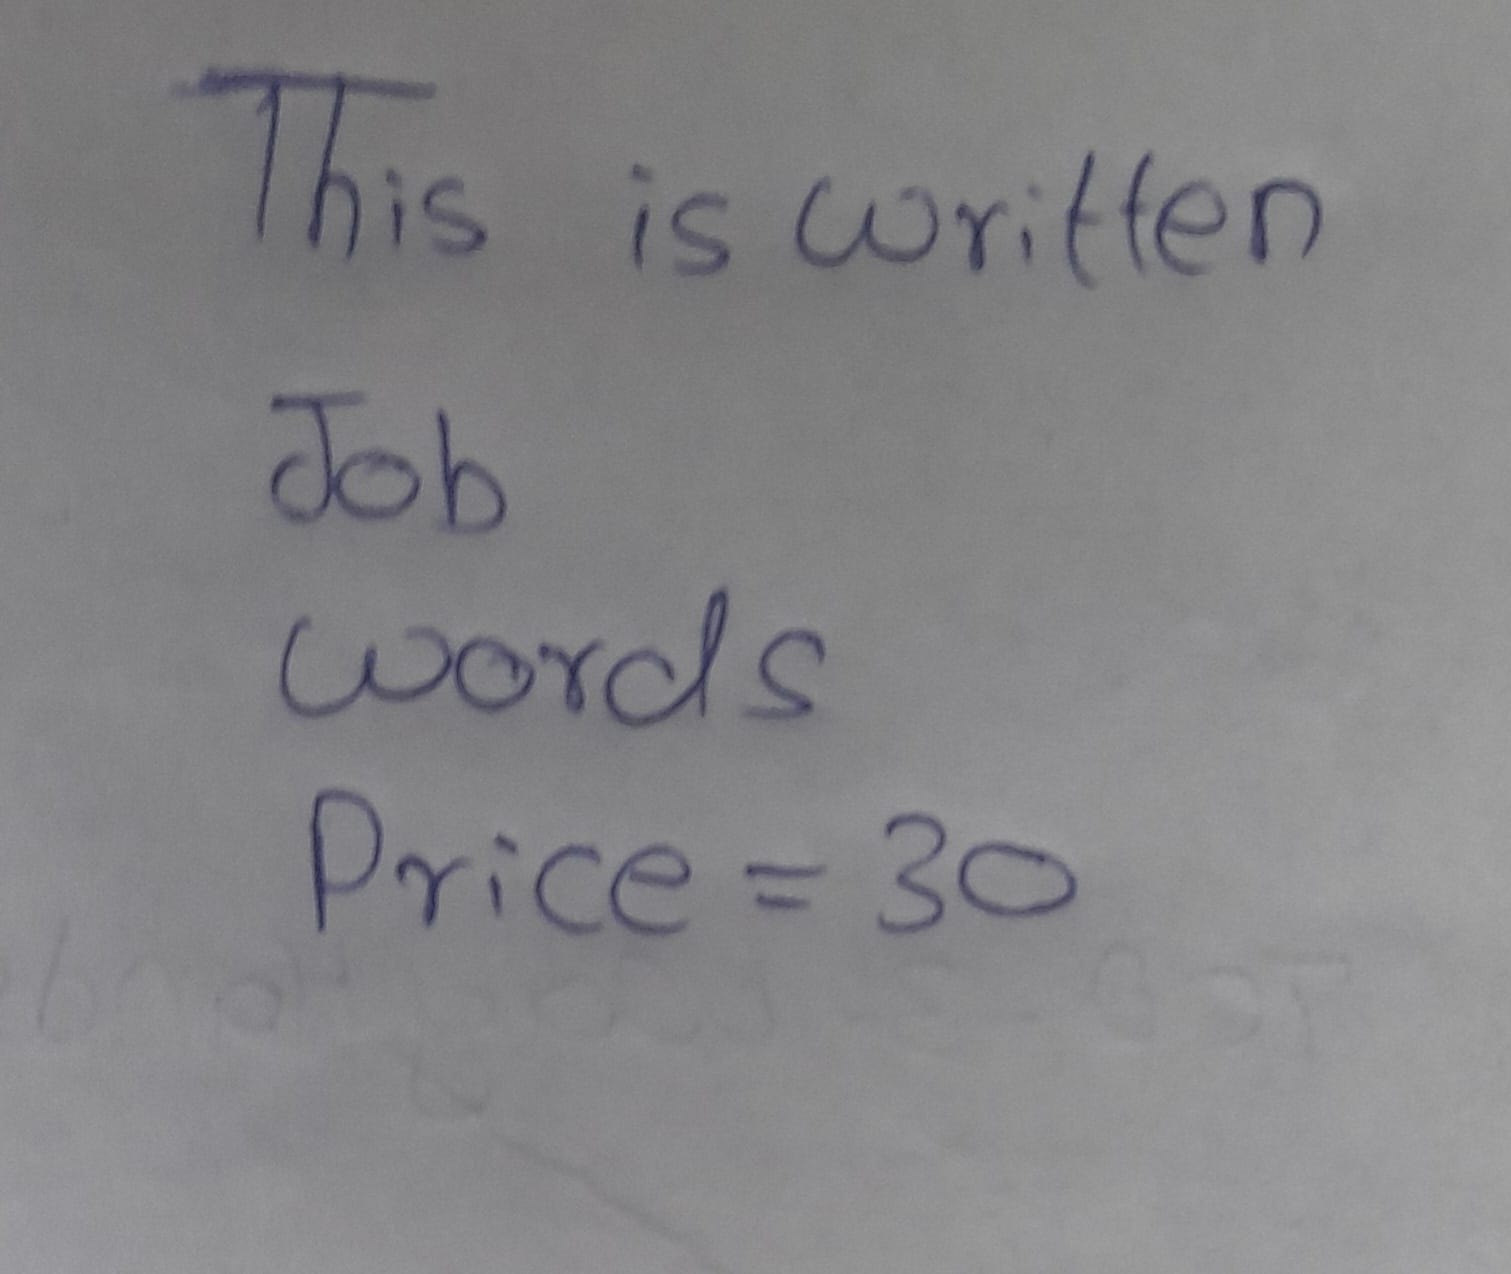 This is written
Job
words
Price = 30